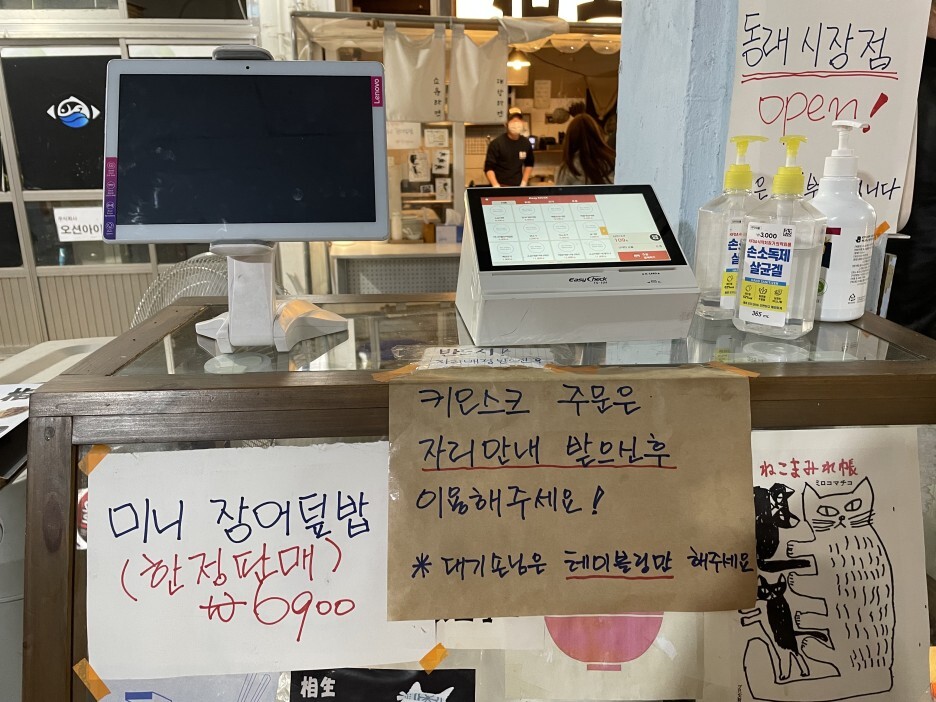 동래시장점
open!
Lenovo
오션아이
EasyCheck
EasyCheck
₩3,000
손소독제
살균겔
365 mL
손소독제
살균겔
키오스크 주문은
자리안내 받으신후
이용해주세요!
* 대기손님은 테이블링만 해주세요
미니 장어덮밥
(한정판매)
₩6900
ねこまみれ帳
ミロコマチコ
相生